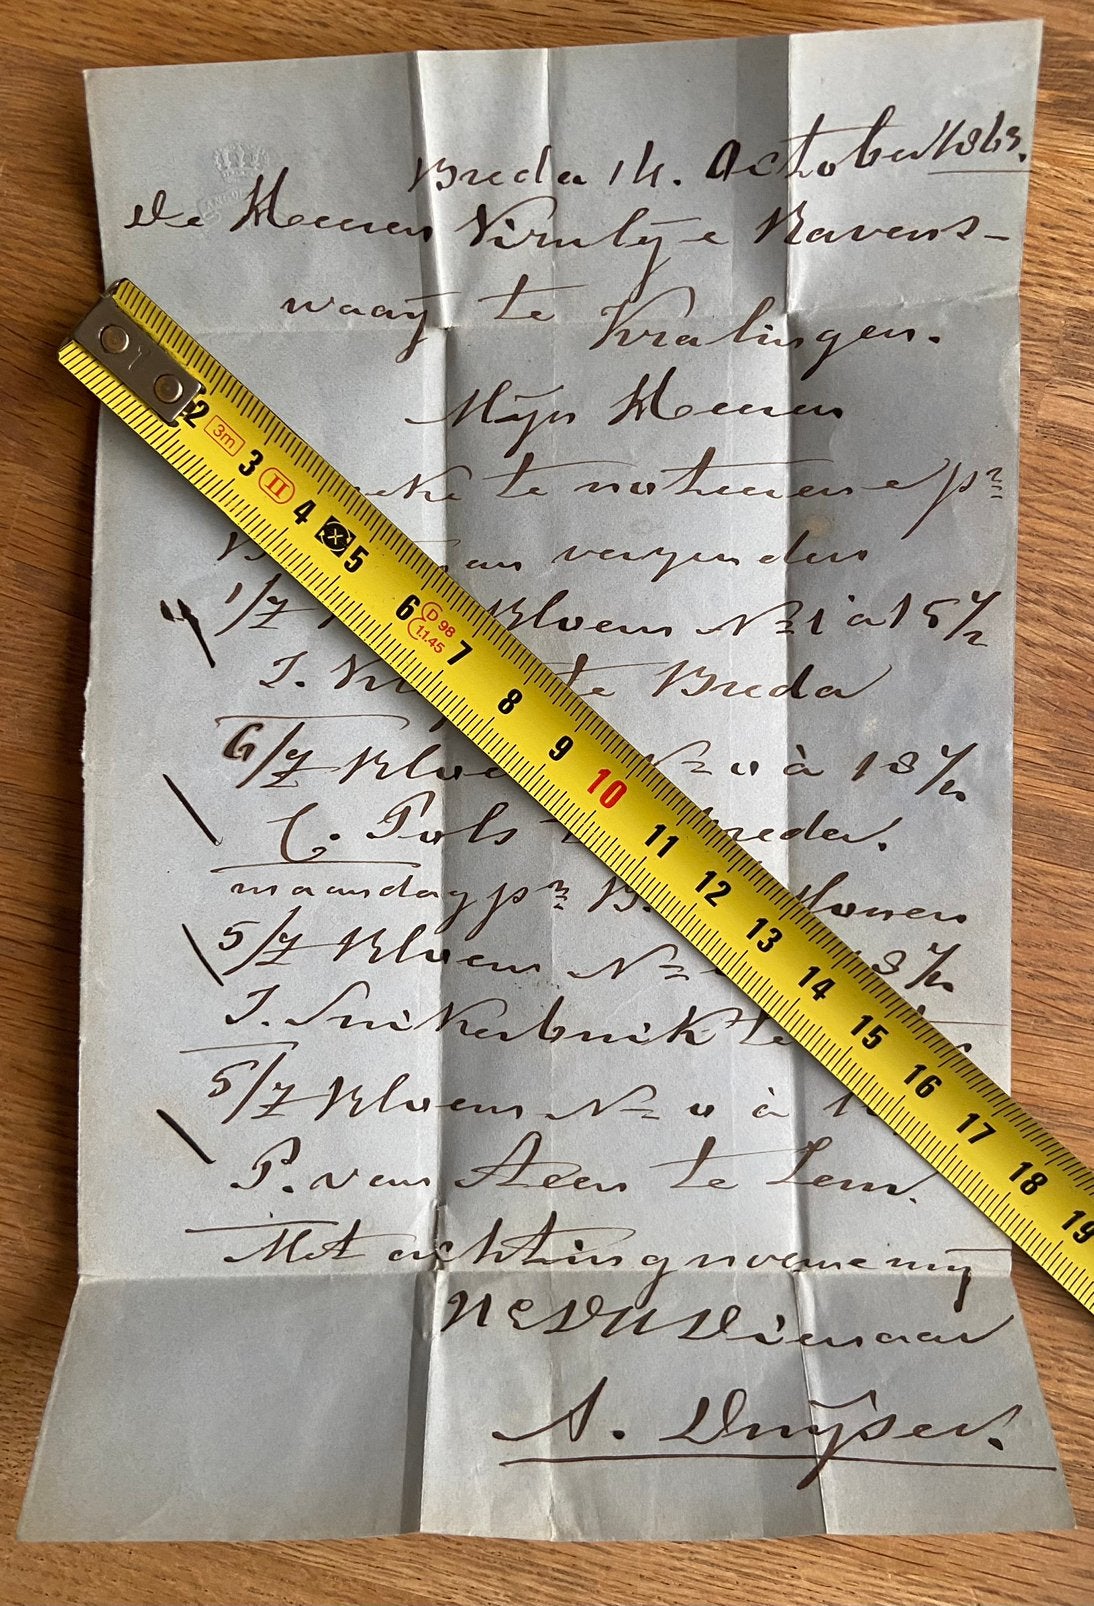 Breda 14. October 1863.
De Heeren Virulÿ e Ravens-
waaÿ te Kralingen.
Mÿn Heeren
te noteeren e pr
van verzenden
1/Z Bloem No 1 à 15 1/2
J. te Breda
6/Z No 0 à 18 1/2
C. Pols
maandag pr B.
5/Z Bloem No 8 1/2
J. Suikerbuik te
5/Z Bloem No 0 à
P. van Aken te Lem.
Met achting noeme mÿ
UEDW Dienaar
A. Duÿser.
2 3m 3 II 4 5 6 D 98 1.1.45 7 8 9 10 11 12 13 14 15 16 17 18 19